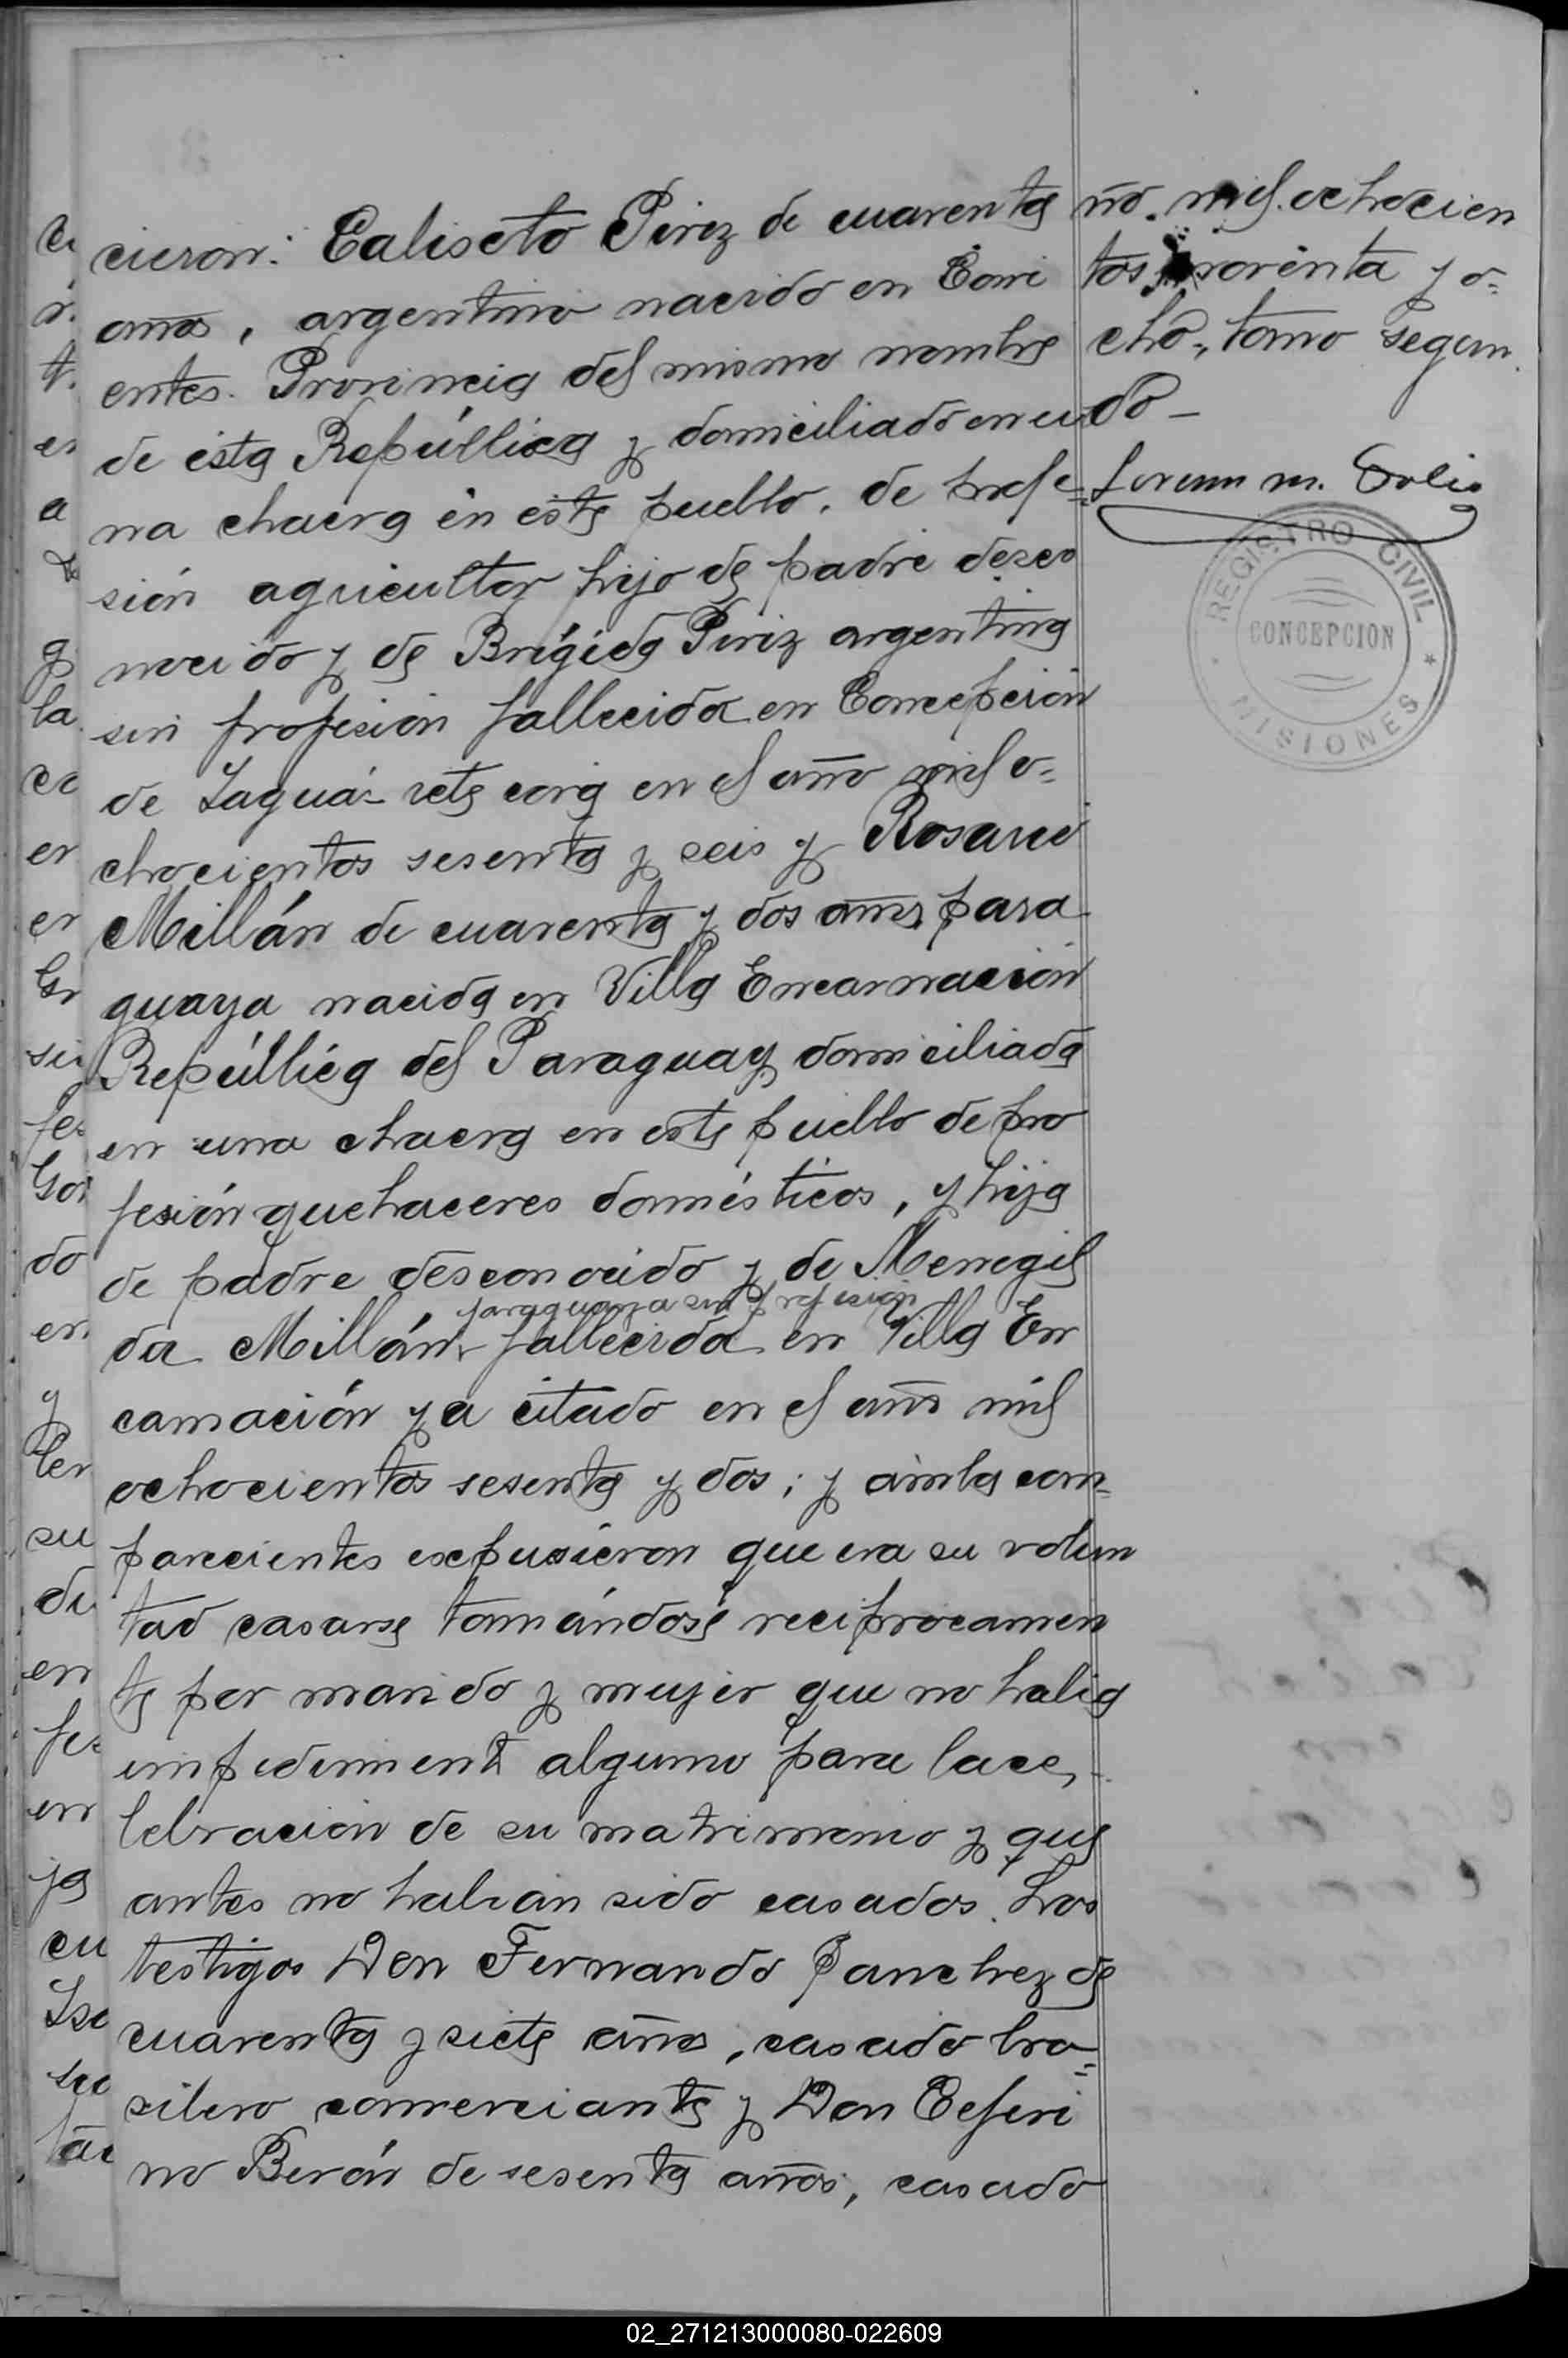 cieron: Caliseto Pirez de cuarenta
años, argentino nacido en Corri
entes. Provincia del mismo nombre
de ésta República y domiciliado en u
na chacra en este pueblo, de profe=
sión agricultor hijo de padre desco
nocido y de Brígida Piriz argentina
sin profesión fallecida en Concepción
de Yaguá-reté corá en el año mil o=
chocientos sesenta y seis y Rosario
Millán de cuarenta y dos años, para
guaya nacida en Villa Encarnación
República del Paraguay domiciliada
en una chacra en este pueblo de pro
fesión quehaceres domésticos, y hija
de padre desconocido y de Meregil
paraguaya sin profesion
da Millán fallecida en Villa En
carnación ya citado en el año mil
ochocientos sesenta y dos; y ambos com=
parecientes expusieron que era su volun
tad casarse tomándose reciprocamen
te por marido y mujer que no habia
impedimento alguno para la ce,
lebracion de su matrimonio y que
antes no habian sido casados. Los
testigos Don Fernando Sanchez de
cuarenta y siete años, casado bra=
silero comerciante y Don Ceferi
no Berón de sesenta años, casado
ño. mil. ochocien
tos noventa y o=
cho, tomo segun
do -
REGISTRO CIVIL
CONCEPCION
MISIONES
02_271213000080-022609